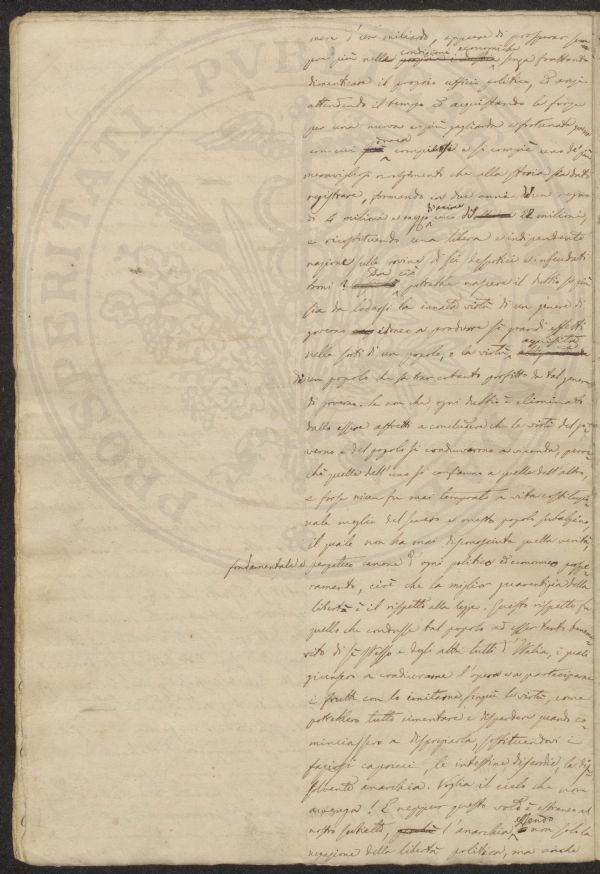 mere d'un miliardo, eppure di prosperar sem=
pre più nelle condizioni economiche senza frattanto
dimenticare il proprio ufficio politico, ed anzi
attendendo il tempo ed acquistando le forze
per una nuova e più gagliarda e fortunata
con cui si compiè uno de' più
meravigliosi rivolgimenti che alla storia sia dato
registrare, formando in due anni d'un regno
di 4 milioni e mezzo uno di 22 milioni,
e ricostituendo una libera e indipendente
nazione sulle rovine di sei despotici e infeudati
troni? Da ciò potrebbe nascere il dubbio se più
sia da lodarsi la innata virtù di un genere di
governo idoneo a produrre sì grandi effetti
nelle sorti di un popolo, o la virtù acquisita
di un popolo che sa trar cotanto profitto da tal genere
di governo. Se non che ogni dubbio è eliminato
dallo essere astretti a concludere che le virtù del go=
verno e del popolo si coadiuvarono a vicenda, poi=
chè quelle dell'uno si confanno a quelle dell'altro,
e forse niun fu mai temprato a vita costituzio=
nale meglio del severo e onesto popolo subalpino,
il quale non ha mai disconosciuta quella verità,
fondamentale e perpetuo canone d'ogni politico ed economico prospe=
ramento, cioè che la miglior guarentigia della
libertà è il rispetto alla legge. Questo rispetto fu
quello che condusse tal popolo ad esser tanto beneme=
rito di sè stesso e degli altri tutti d'Italia, i quali
giunsero a coadiuvarne l'opera e a parteciparne
i frutti con lo imitarne le virtù, come
potrebbero tutto cimentare e disperdere quando co=
minciassero a dispregiarla, sostituendovi i
faziosi capricci, le intestine discordie, la dis=
solvente anarchia. Voglia il cielo che non
avvenga! E neppur questo voto è estraneo al
nostro subietto, l'anarchia essendo non solo la
negazione della libertà politica, ma anche